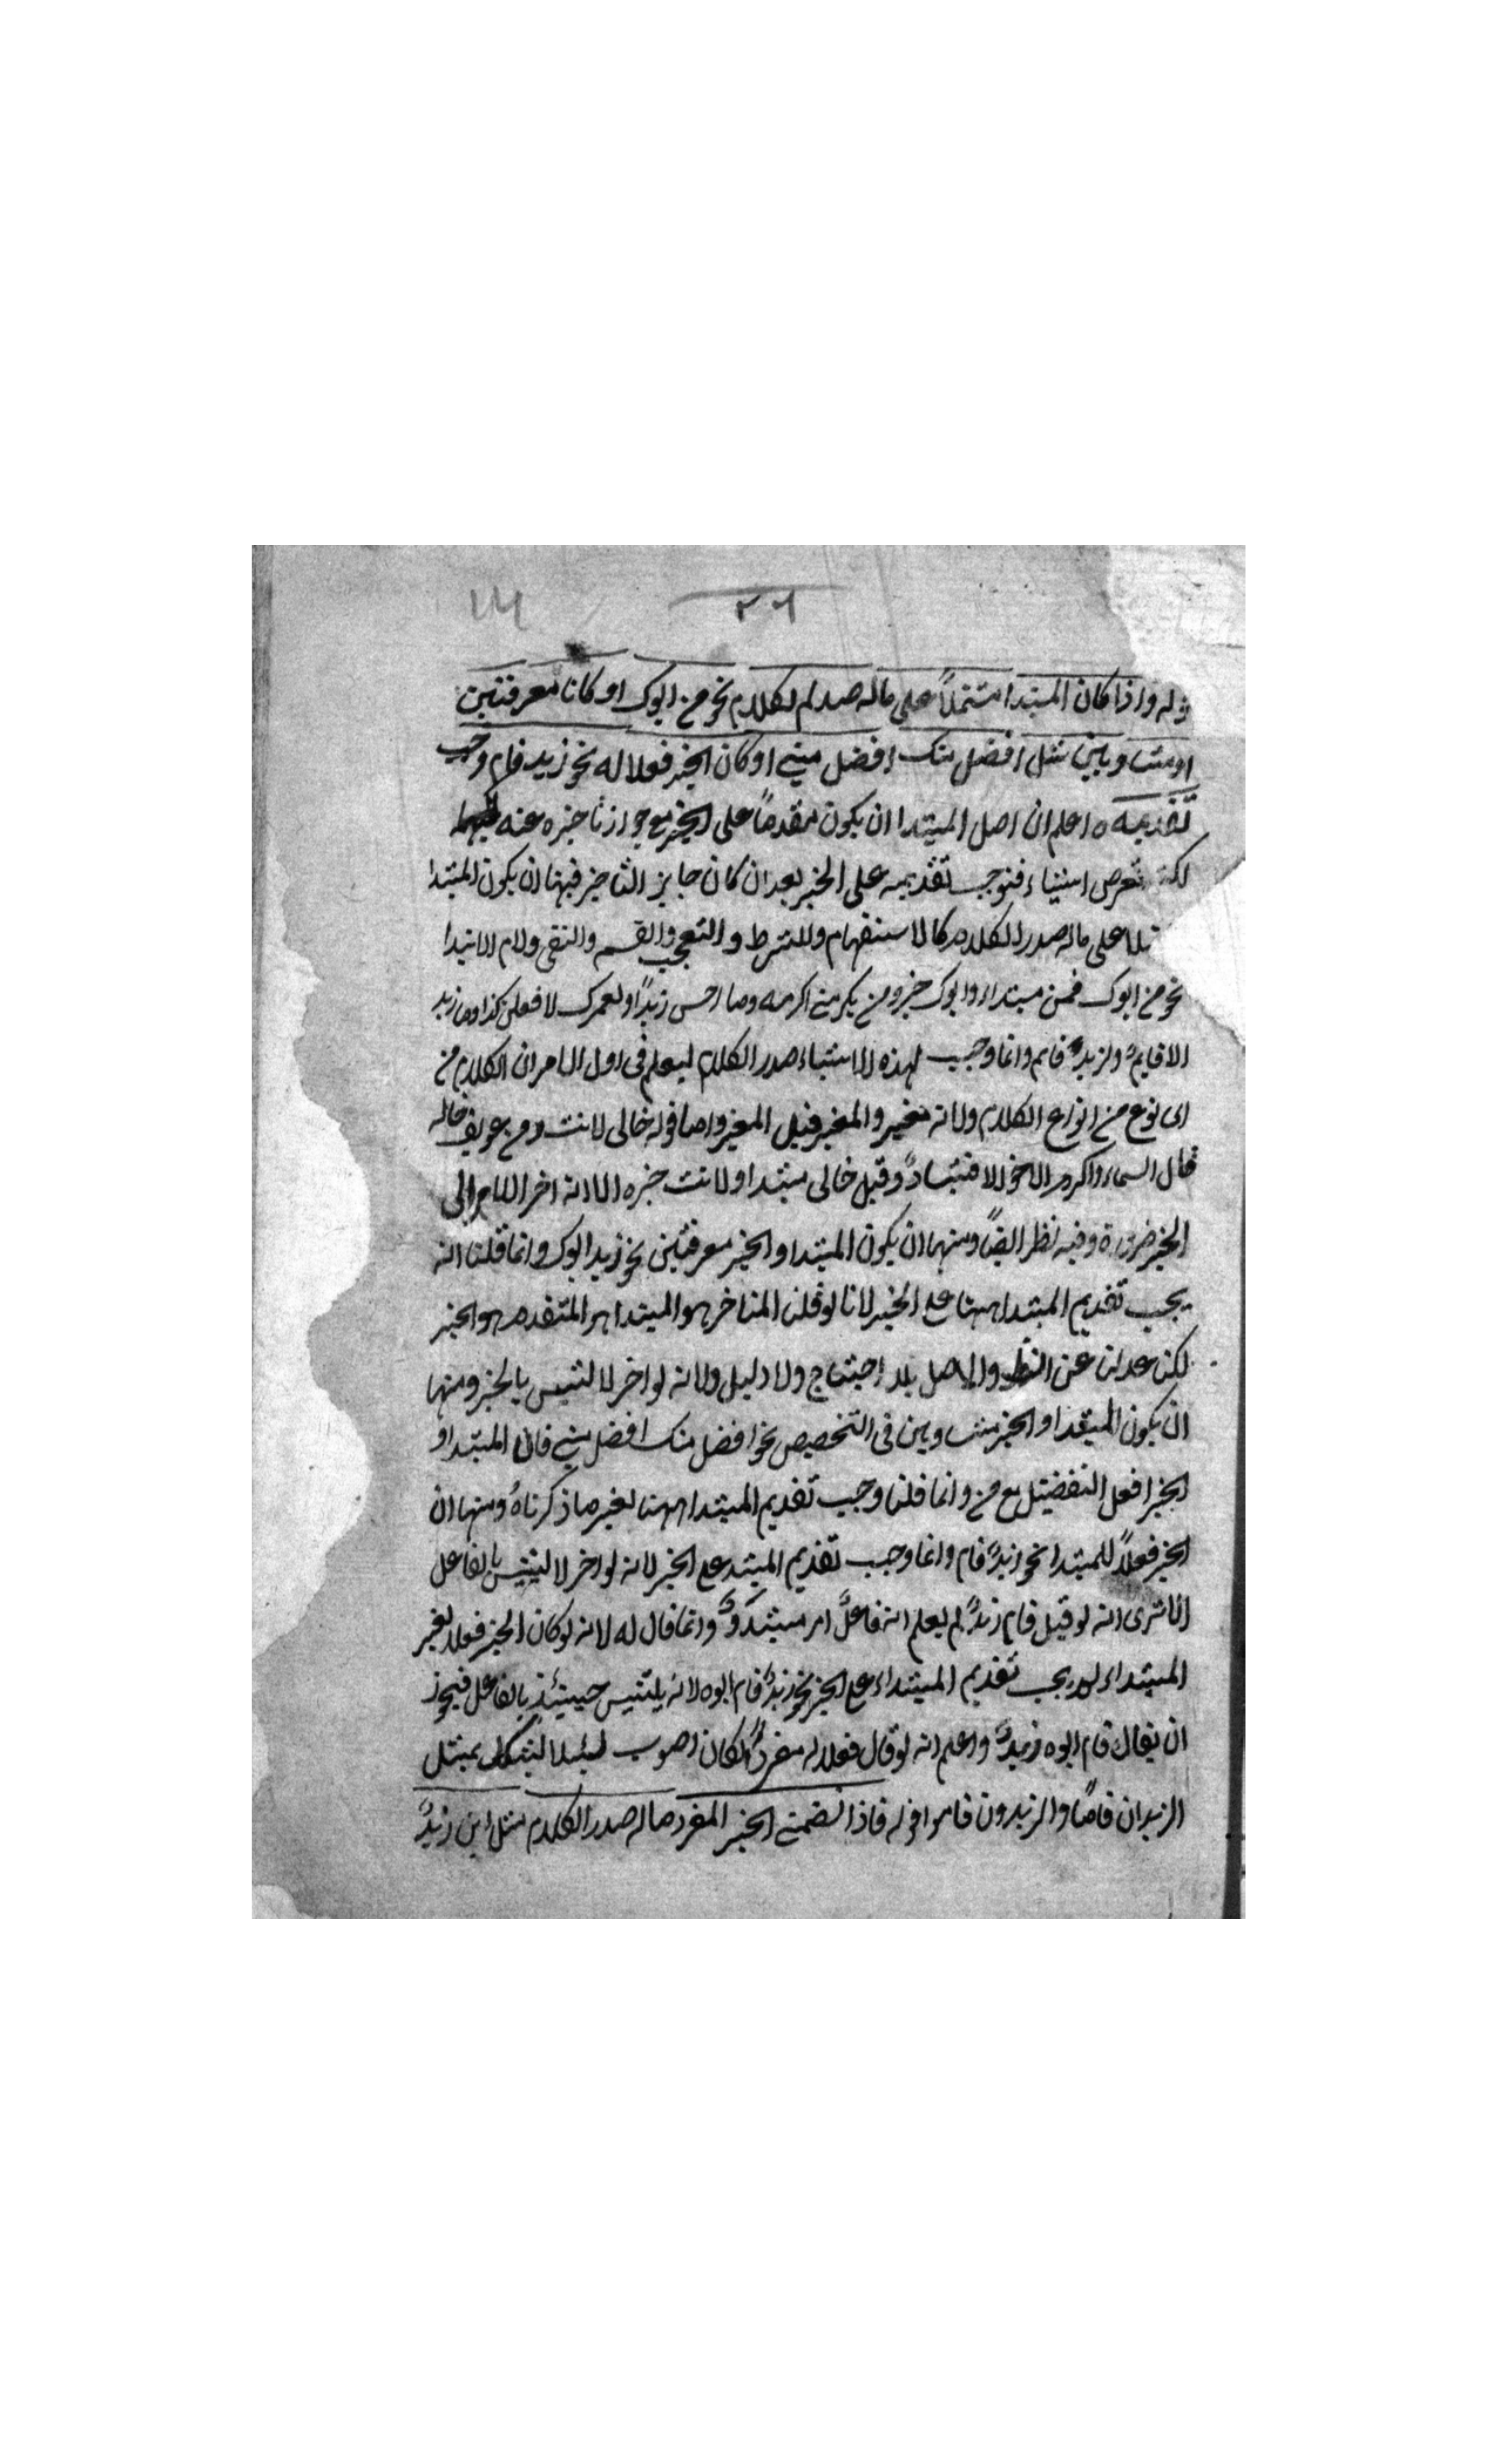 ٢٦
قوله واذا كان المبتدا مشتملاً على ماله صدر الكلام نحو من ابوك او كانا معرفتين
او متساويين مثل افضل منك افضل مني او كان الخبر فعلا له نحو زيد قام وجب
تقديمه ه اعلم ان اصل المبتدا ان يكون مقدماً على الخبر مع جواز تاخيره عنه
لكنه تعرض اشياء فتوجب تقديمه على الخبر بعد ان كان جايز التاخير فمنها ان يكون المبتدا
على ماله صدر الكلام كالاستفهام وللشرط والتعجب والقسم والنفى ولام الابتدا
نحو من ابوك فمن مبتداء وابوك خبر ومن يكرمني اكرمه وما احسن زيدًا ولعمرك لافعلن كذا وما زيد
الا قايمٌ ولزيدٌ قايم وانما وجب لهذه الاشياء صدر الكلام ليعلم فى اول الامر ان الكلام من
اى نوع من انواع الكلام ولانه مغير والمغير قبل المغير واما قوله خالى لانت ومن عويف خاله
ينال السماء واكرم الاخوالا فشاذ وقيل خالى مبتدا ولانت خبره الا انه اخر اللام الى
الخبر ضرورة وفيه نظر ايضًا ومنها ان يكون المبتدا والخبر معرفتين نحو زيد ابوك وانما قلنا انه
يجب تقديم المبتدا ههنا على الخبر لانا لو قلنا المتاخر هو المبتدا والمتقدم هو الخبر
لكنا عدلنا عن النظر والاصل بلا احتياج ولا دليل ولانه لو اخر لالتبس بالخبر ومنها
ان يكون المبتدا والخبر متساويين فى التخصيص نحو افضل منك افضل مني فان المبتدا و
الخبر افعل التفضيل مع من وانما قلنا وجب تقديم المبتدا ههنا لغير ما ذكرناهُ ومنها ان
الخبر فعلاً للمبتدا نحو زيدٌ قام وانما وجب تقديم المبتدا على الخبر لانه لو اخر لالتبس بالفاعل
الا ترى انه لو قيل قام زيدٌ لم يعلم انه فاعلٌ ام مبتدٌ وانما قال له لانه لو كان الخبر فعلا لغير
المبتداء لم يجب تقديم المبتداء على الخبر نحو زيدٌ قام ابوه لانه يلتبس حينئذٍ بالفاعل فيجوز
ان يقال قام ابوه زيدٌ واعلم انه لو قال فعلا له مفردًا لكان اصوب لئلا يشكل بمثل
الزيدان قاما والزيدون قاموا قوله فاذا تضمن الخبر المفرد ماله صدر الكلام مثل اين زيدٌ